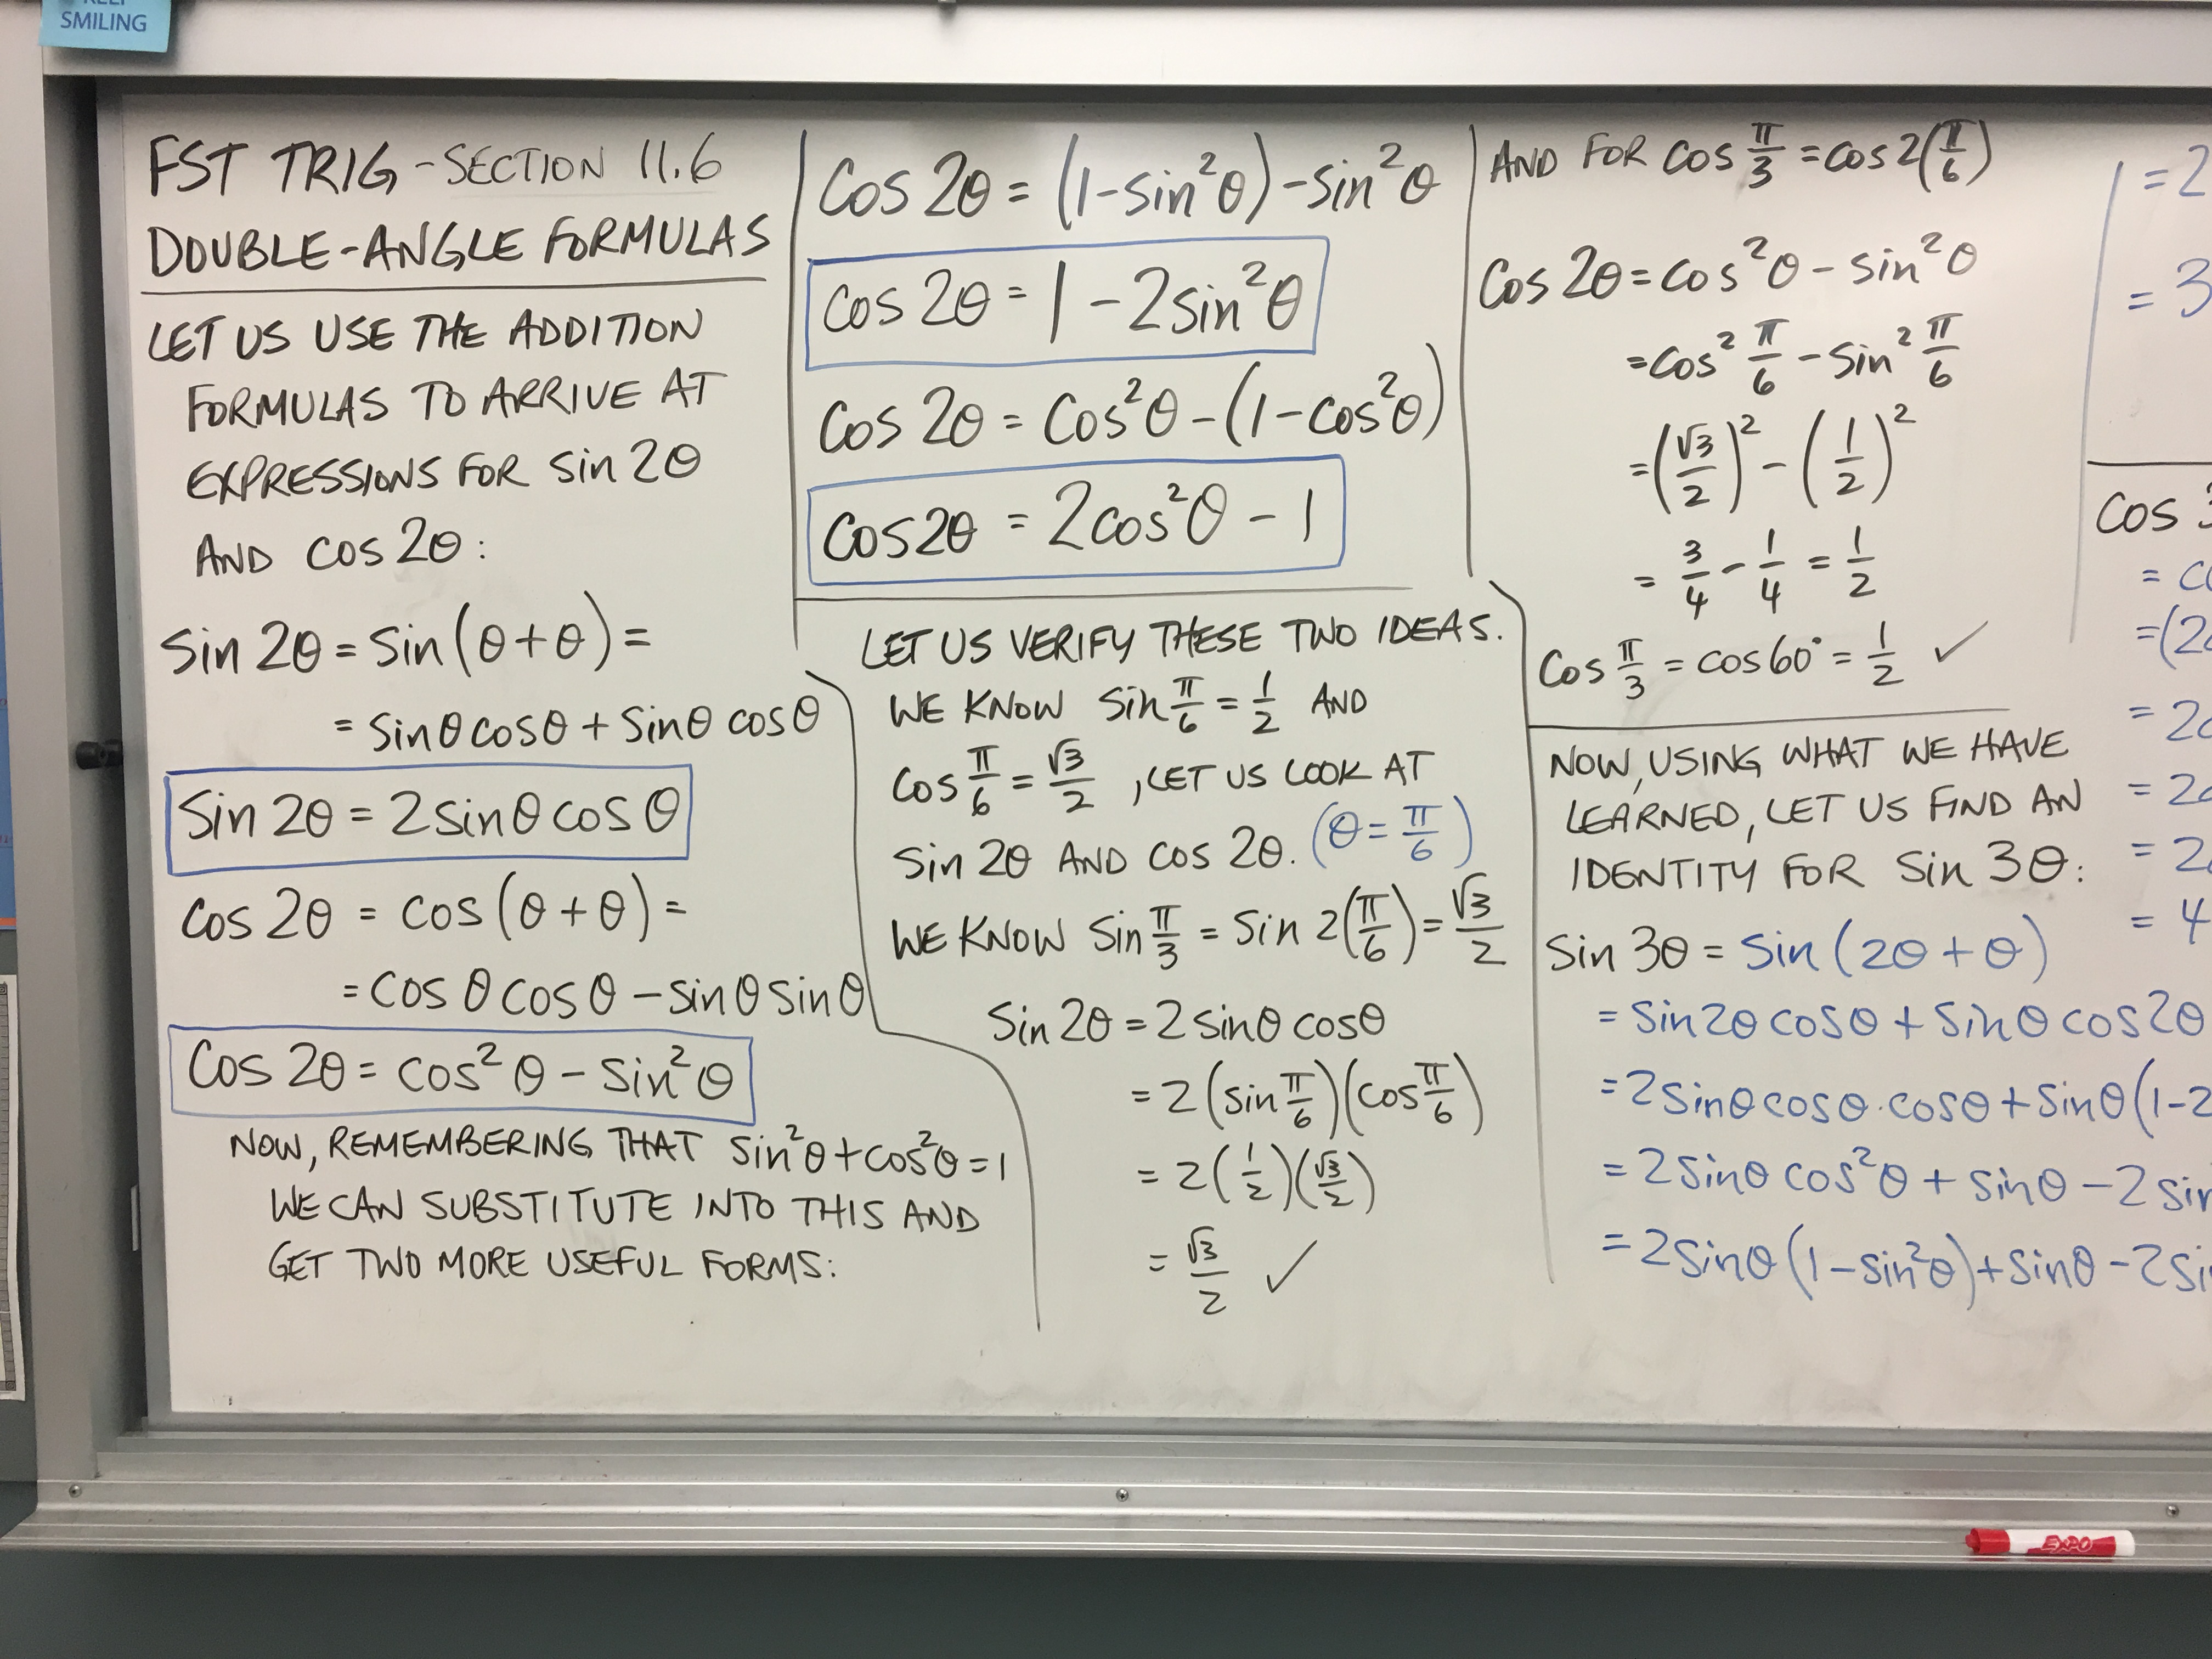 SMILING
FST TRIG - SECTION 11.6
DOUBLE-ANGLE FORMULAS
LET US USE THE ADDITION
FORMULAS TO ARRIVE AT
EXPRESSIONS FOR sin 2θ
AND cos 2θ:
sin 2θ = sin(θ+θ) =
= sinθ cosθ + sinθ cosθ
sin 2θ = 2 sinθ cosθ
cos 2θ = cos(θ+θ) =
= cosθ cosθ - sinθ sinθ
cos 2θ = cos²θ - sin²θ
NOW, REMEMBERING THAT sin²θ + cos²θ = 1
WE CAN SUBSTITUTE INTO THIS AND
GET TWO MORE USEFUL FORMS:
cos 2θ = (1-sin²θ) - sin²θ
cos 2θ = 1 - 2sin²θ
cos 2θ = cos²θ - (1-cos²θ)
cos 2θ = 2cos²θ - 1
LET US VERIFY THESE TWO IDEAS.
WE KNOW sin π/6 = 1/2 AND
cos π/6 = √3/2, LET US LOOK AT
sin 2θ AND cos 2θ. (θ = π/6)
WE KNOW sin π/3 = sin 2(π/6) = √3/2
sin 2θ = 2 sinθ cosθ
= 2(sin π/6)(cos π/6)
= 2(1/2)(√3/2)
= √3/2 ✓
AND FOR cos π/3 = cos 2(π/6)
cos 2θ = cos²θ - sin²θ
= cos² π/6 - sin² π/6
= (√3/2)² - (1/2)²
= 3/4 - 1/4 = 1/2
cos π/3 = cos 60° = 1/2 ✓
NOW, USING WHAT WE HAVE
LEARNED, LET US FIND AN
IDENTITY FOR sin 3θ:
sin 3θ = sin(2θ + θ)
= sin2θ cosθ + sinθ cos2θ
= 2 sinθ cosθ · cosθ + sinθ(1-2
= 2 sinθ cos²θ + sinθ - 2 sin
= 2 sinθ(1-sin²θ) + sinθ - 2 si
= 2
= 3
cos 3
= co
= (2c
= 2c
= 2c
= 2c
= 4
EXPO